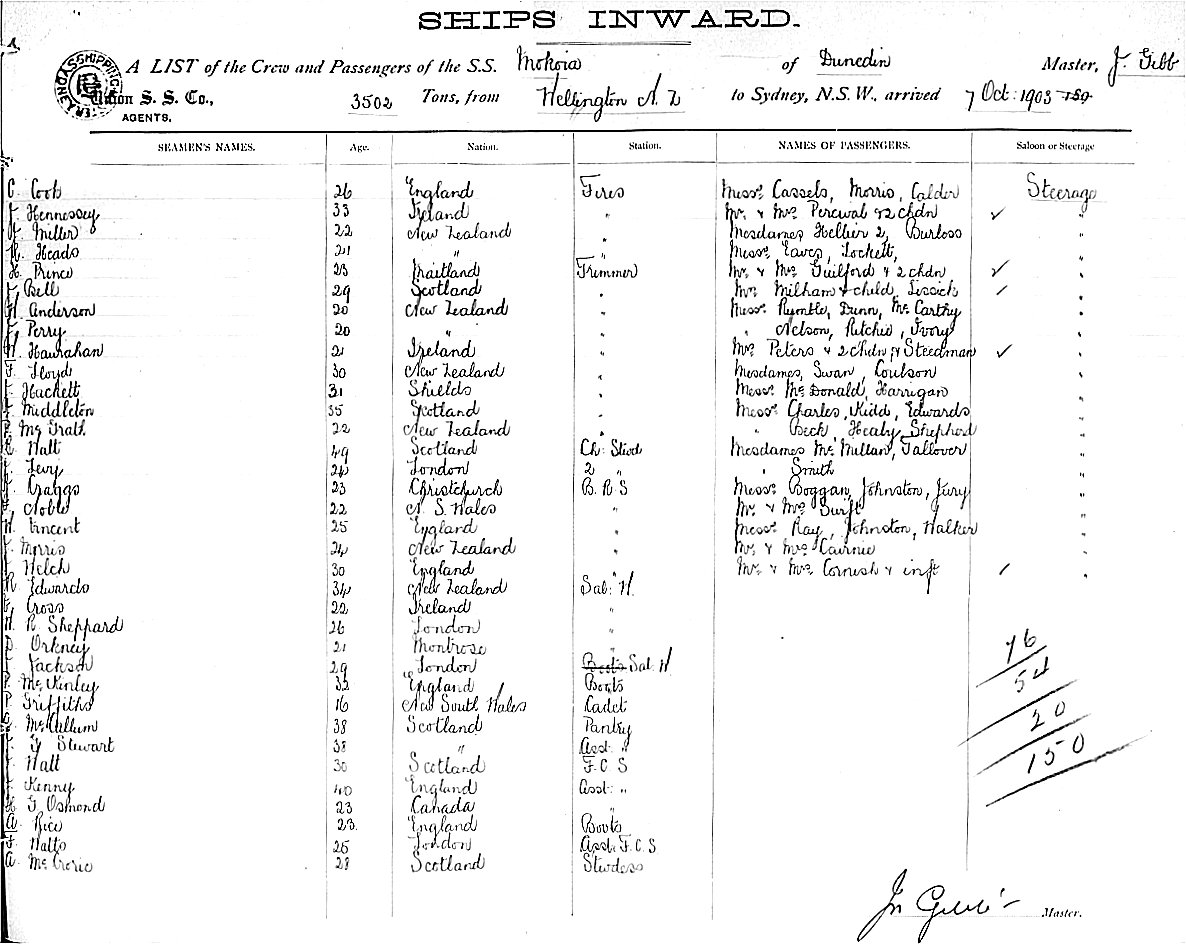 SHIPS INWARD.
A LIST of the Crew and Passengers of the S.S. Mokoia of Dunedin Master, J. Gibb
Union S. S. Co., 3502 Tons, from Wellington N. Z to Sydney, N.S.W., arrived 7 Oct: 1903 189
AGENTS.
SEAMEN'S NAMES. Age. Nation. Station. NAMES OF PASSENGERS. Saloon or Steerage
C. Cook 26 England Fires Messrs Cassels, Morris, Calder Steerage
J. Hennessey 33 Ireland " Mr. & Mrs Percival & 2 chdn ✓ "
Miller 22 New Zealand " Mesdames Hellier 2, Burloss "
R. Heads 21 " " Messrs Eaves, Lockett, "
H. Prince 23 Maitland Trimmer Mr. & Mrs Guilford & 2 chdn ✓ "
Bell 29 Scotland " Mrs Milham & child, Lissick ✓ "
Anderson 20 New Zealand " Messrs Rumble, Dunn, McCarthy "
Perry 20 " " " Nelson, Ritchie, Ivory "
Hanrahan 21 Ireland " Mrs Peters & 2 chdn, Steedman ✓ "
F. Lloyd 30 New Zealand " Mesdames, Swan, Coulson "
Hackett 31 Shields " Messrs McDonald, Harrigan "
Middleton 35 Scotland " Messrs Charles, Kidd, Edwards "
McGrath 22 New Zealand " " Beck, Healy, Shepherd "
Watt 49 Scotland Ch: Stwd Mesdames McMillan, Tallover "
Levy 24 London 2 " " Smith "
Craggs 23 Christchurch B. R S Messrs Boggan, Johnston, Jury "
Noble 22 N. S. Wales " Mr. & Mrs Swift "
Vincent 25 England " Messrs Ray, Johnston, Walker "
Morris 24 New Zealand " Mr. & Mrs Cairnie "
Welch 30 England " Mr. & Mrs Cornish & inft ✓ "
R. Edwards 34 New Zealand Sal: W.
Cross 22 Ireland "
H. R. Sheppard 26 London "
D. Orkney 21 Montrose "
Jackson 29 London Boots Sal: W
McKinley 32 England Boots
P. Griffiths 16 New South Wales Cadet
McCallum 38 Scotland Pantry
Stewart 38 " Asst: "
Watt 30 Scotland F. C. S
Kenny 40 England Asst: "
H. G Osmond 23 Canada "
A. Rice 23. England Boots
F. Watts 25 London Asst: F. C. S
A. McCrorie 28 Scotland Stwdess
76
54
20
150
Jn Gibb
Master.